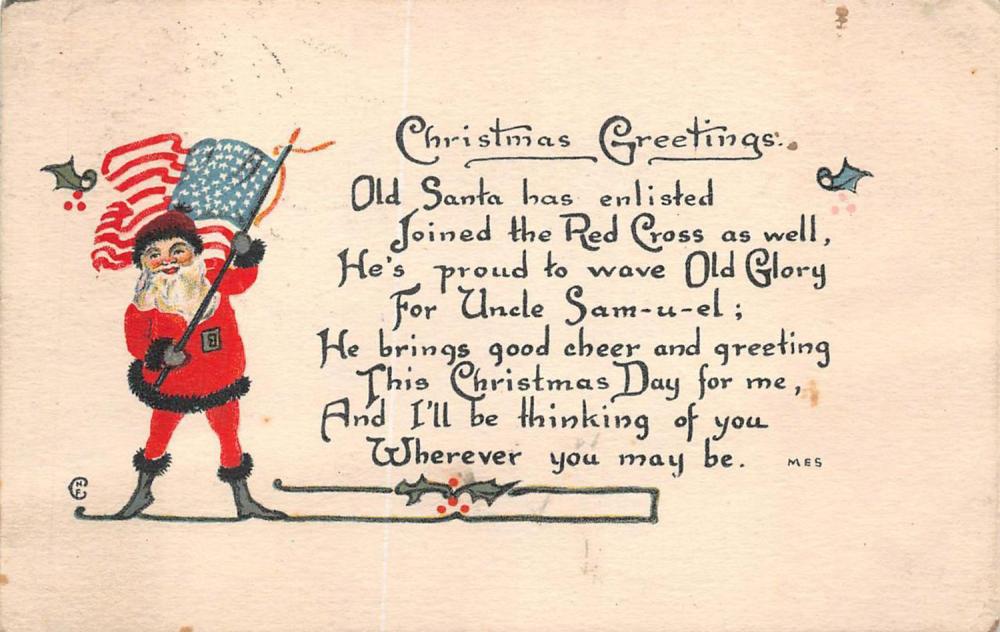 Christmas Greetings.
Old Santa has enlisted
Joined the Red Cross as well,
He's proud to wave Old Glory
For Uncle Sam-u-el;
He brings good cheer and greeting
This Christmas Day for me,
And I'll be thinking of you
Wherever you may be.
MES